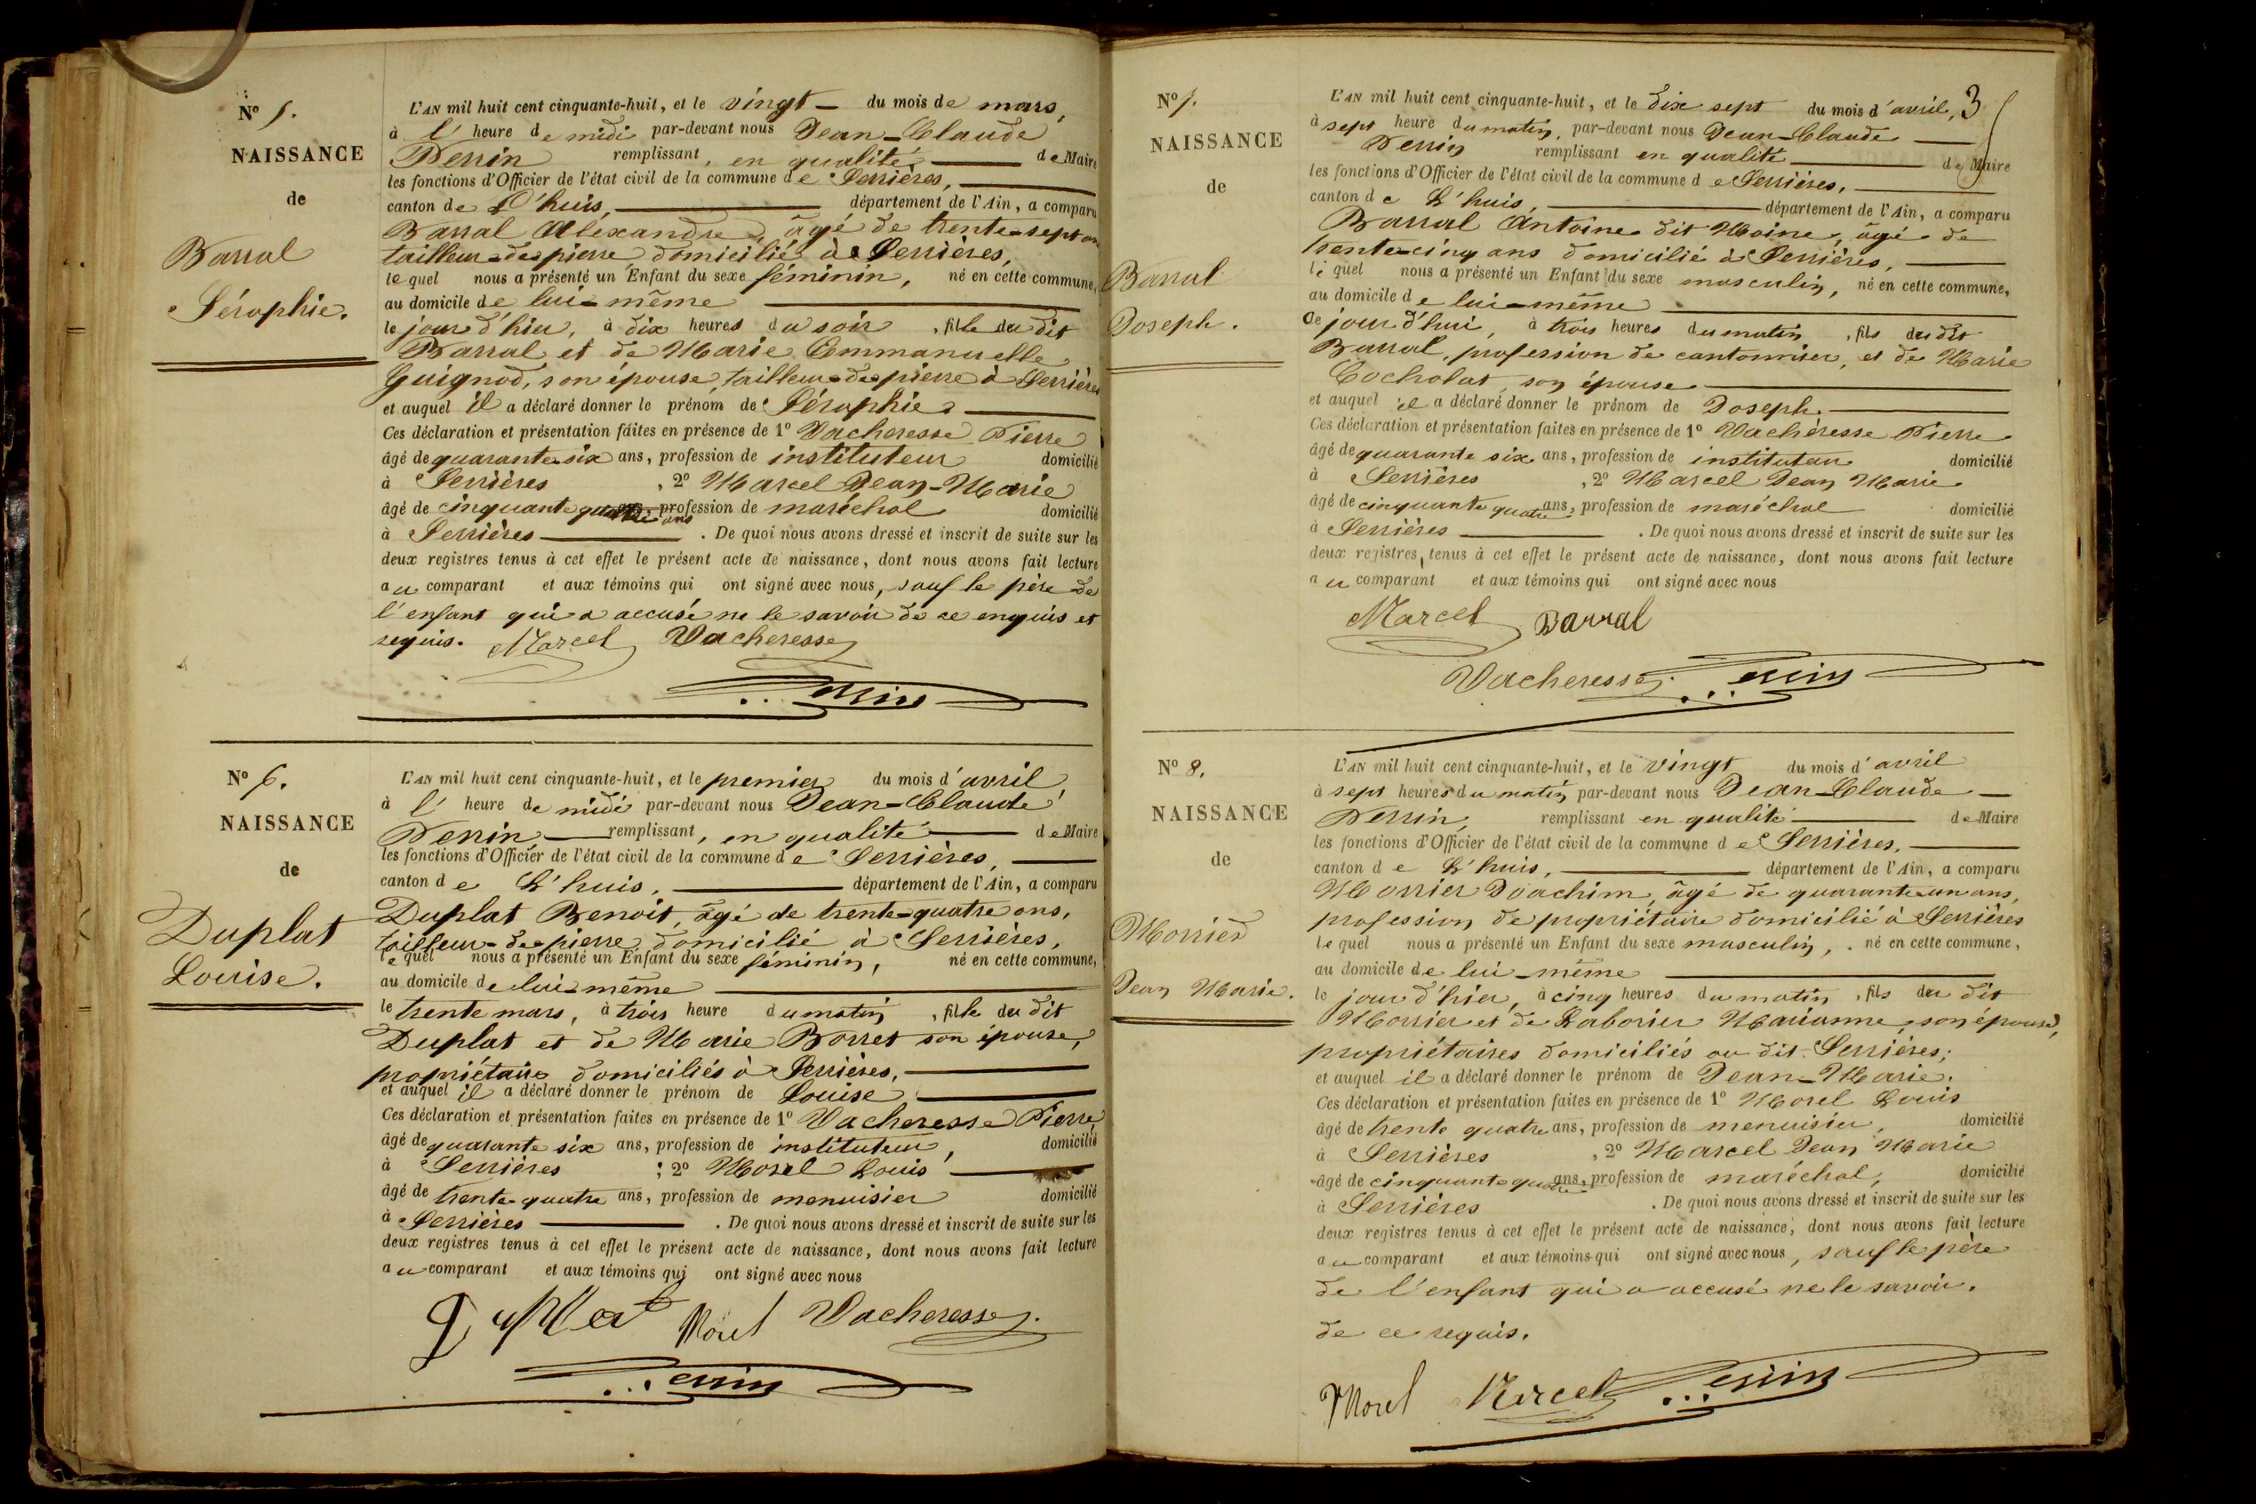 N° 5.
NAISSANCE
de
Barral
Séraphie.
L'AN mil huit cent cinquante-huit, et le vingt du mois de mars,
à l' heure de midi par-devant nous Jean-Claude
Perrin remplissant, en qualité de Maire
les fonctions d'Officier de l'état civil de la commune de Serrières,
canton de L'huis, département de l'Ain, a comparu
Barral Alexandre, âgé de trente-sept ans
tailleur de pierre domicilié à Serrières,
lequel nous a présenté un Enfant du sexe féminin, né en cette commune,
au domicile de lui-même
le jour d'hier, à dix heures du soir, fille du dit
Barral et de Marie Emmanuelle
Guignod, son épouse, tailleur de pierre à Serrières
et auquel il a déclaré donner le prénom de Séraphie
Ces déclaration et présentation faites en présence de 1° Vacheresse Pierre
âgé de quarante six ans, profession de instituteur domicilié
à Serrières, 2° Marcel Jean-Marie
âgé de cinquante quatre ans profession de maréchal domicilié
à Serrières. De quoi nous avons dressé et inscrit de suite sur les
deux registres tenus à cet effet le présent acte de naissance, dont nous avons fait lecture
au comparant et aux témoins qui ont signé avec nous, sauf le père de
l'enfant qui a accusé ne le savoir de ce enquis et
requis. Marcel Vacheresse
Perrin
N° 6.
NAISSANCE
de
Duplat
Louise.
L'AN mil huit cent cinquante-huit, et le premier du mois d'avril
à l' heure de midi par-devant nous Jean-Claude
Perrin remplissant, en qualité de Maire
les fonctions d'Officier de l'état civil de la commune de Serrières,
canton de L'huis, département de l'Ain, a comparu
Duplat Benoit, âgé de trente-quatre ans,
tailleur de pierre domicilié à Serrières,
lequel nous a présenté un Enfant du sexe féminin, né en cette commune,
au domicile de lui-même
le trente mars, à trois heure du matin, fille du dit
Duplat et de Marie Borret son épouse,
propriétaire domiciliés à Serrières,
et auquel il a déclaré donner le prénom de Louise
Ces déclaration et présentation faites en présence de 1° Vacheresse Pierre
âgé de quarante six ans, profession de instituteur, domicilié
à Serrières ; 2° Morel Louis
âgé de trente-quatre ans, profession de menuisier domicilié
à Serrières. De quoi nous avons dressé et inscrit de suite sur les
deux registres tenus à cet effet le présent acte de naissance, dont nous avons fait lecture
au comparant et aux témoins qui ont signé avec nous
Duplat Morel Vacheresse.
Perrin
3
N° 7.
NAISSANCE
de
Barral
Joseph.
L'AN mil huit cent cinquante-huit, et le dix sept du mois d'avril,
à sept heure du matin, par-devant nous Jean-Claude
Perrin remplissant en qualité de Maire
les fonctions d'Officier de l'état civil de la commune de Serrières,
canton de L'huis, département de l'Ain, a comparu
Barral Antoine dit Moine, âgé de
trente-cinq ans domicilié à Serrières,
lequel nous a présenté un Enfant du sexe masculin, né en cette commune,
au domicile de lui-même
ce jour d'hui, à trois heures du matin, fils du dit
Barral, profession de cantonnier, et de Marie
Cocholat, son épouse
et auquel il a déclaré donner le prénom de Joseph.
Ces déclaration et présentation faites en présence de 1° Vacheresse Pierre
âgé de quarante six ans, profession de instituteur domicilié
à Serrières, 2° Marcel Jean Marie
âgé de cinquante quatre ans, profession de maréchal domicilié
à Serrières. De quoi nous avons dressé et inscrit de suite sur les
deux registres tenus à cet effet le présent acte de naissance, dont nous avons fait lecture
au comparant et aux témoins qui ont signé avec nous
Marcel Barral
Vacheresse. Perrin
N° 8.
NAISSANCE
de
Morrier
Jean Marie.
L'AN mil huit cent cinquante-huit, et le vingt du mois d'avril
à sept heures du matin par-devant nous Jean-Claude
Perrin, remplissant en qualité de Maire
les fonctions d'Officier de l'état civil de la commune de Serrières,
canton de L'huis, département de l'Ain, a comparu
Morrier Joachim, âgé de quarante un ans,
profession de propriétaire domicilié à Serrières
lequel nous a présenté un Enfant du sexe masculin, né en cette commune,
au domicile de lui-même
le jour d'hier, à cinq heures du matin, fils du dit
Morrier et de Laborier Marianne, son épouse,
propriétaires domiciliés au dit Serrières;
et auquel il a déclaré donner le prénom de Jean-Marie.
Ces déclaration et présentation faites en présence de 1° Morel Louis
âgé de trente quatre ans, profession de menuisier, domicilié
à Serrières, 2° Marcel Jean Marie
âgé de cinquante quatre ans, profession de maréchal, domicilié
à Serrières. De quoi nous avons dressé et inscrit de suite sur les
deux registres tenus à cet effet le présent acte de naissance, dont nous avons fait lecture
au comparant et aux témoins qui ont signé avec nous, sauf le père
de l'enfant qui a accusé ne le savoir.
de ce requis.
Morel Marcel Perrin